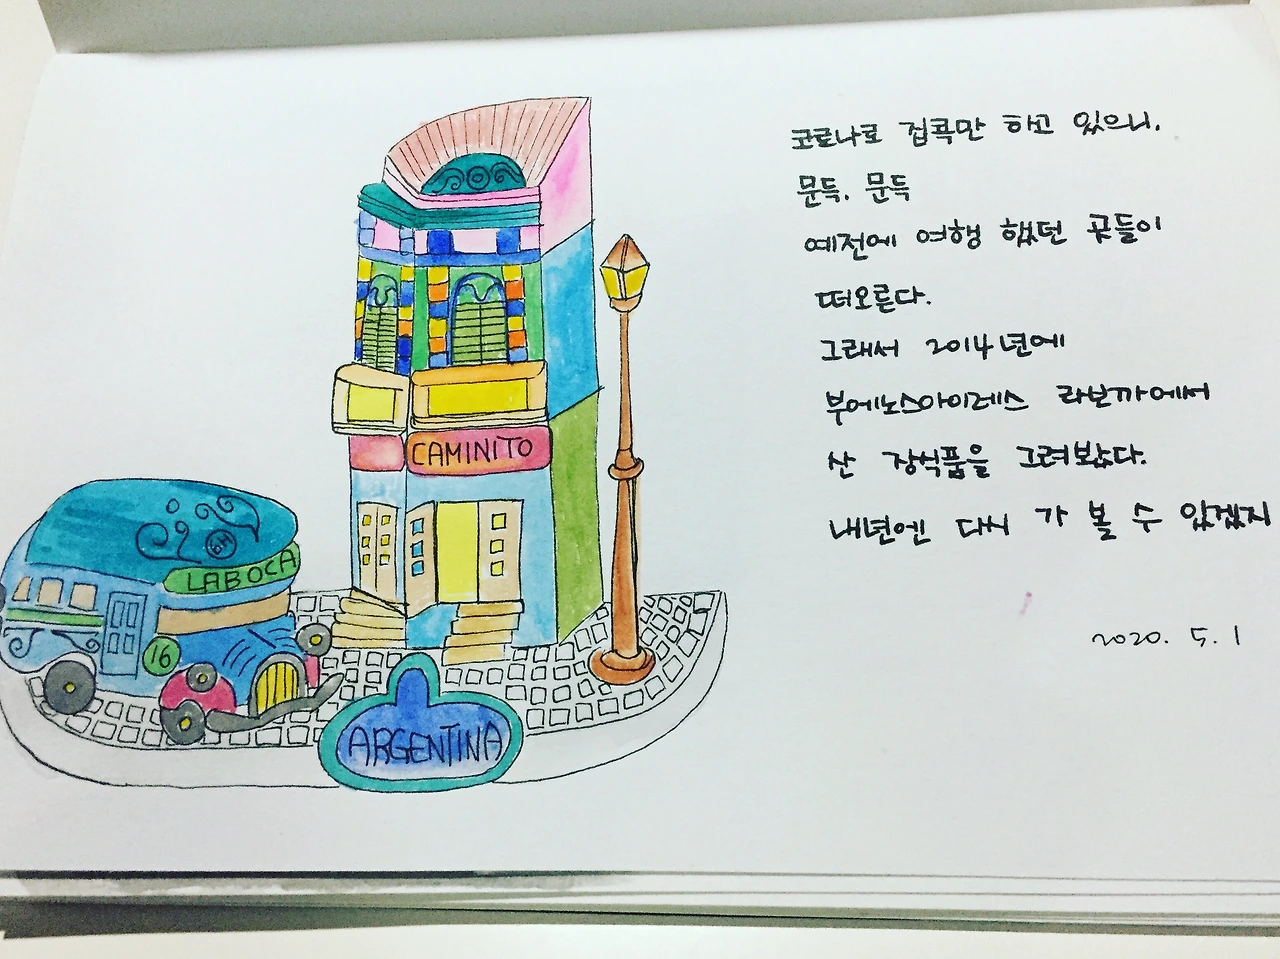 코로나로 집콕만 하고 있으니,
문득, 문득
예전에 여행 했던 곳들이
떠오른다.
그래서 2014년에
부에노스아이레스 라보까에서
산 장식품을 그려봤다.
내년엔 다시 가 볼 수 있겠지
2020. 5. 1
CAMINITO
LABOCA
16
ARGENTINA